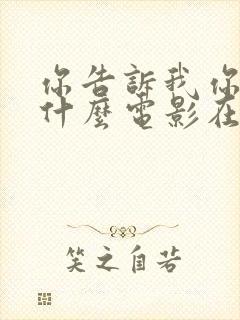 你告訴我你
什麼電影在
笑之自若